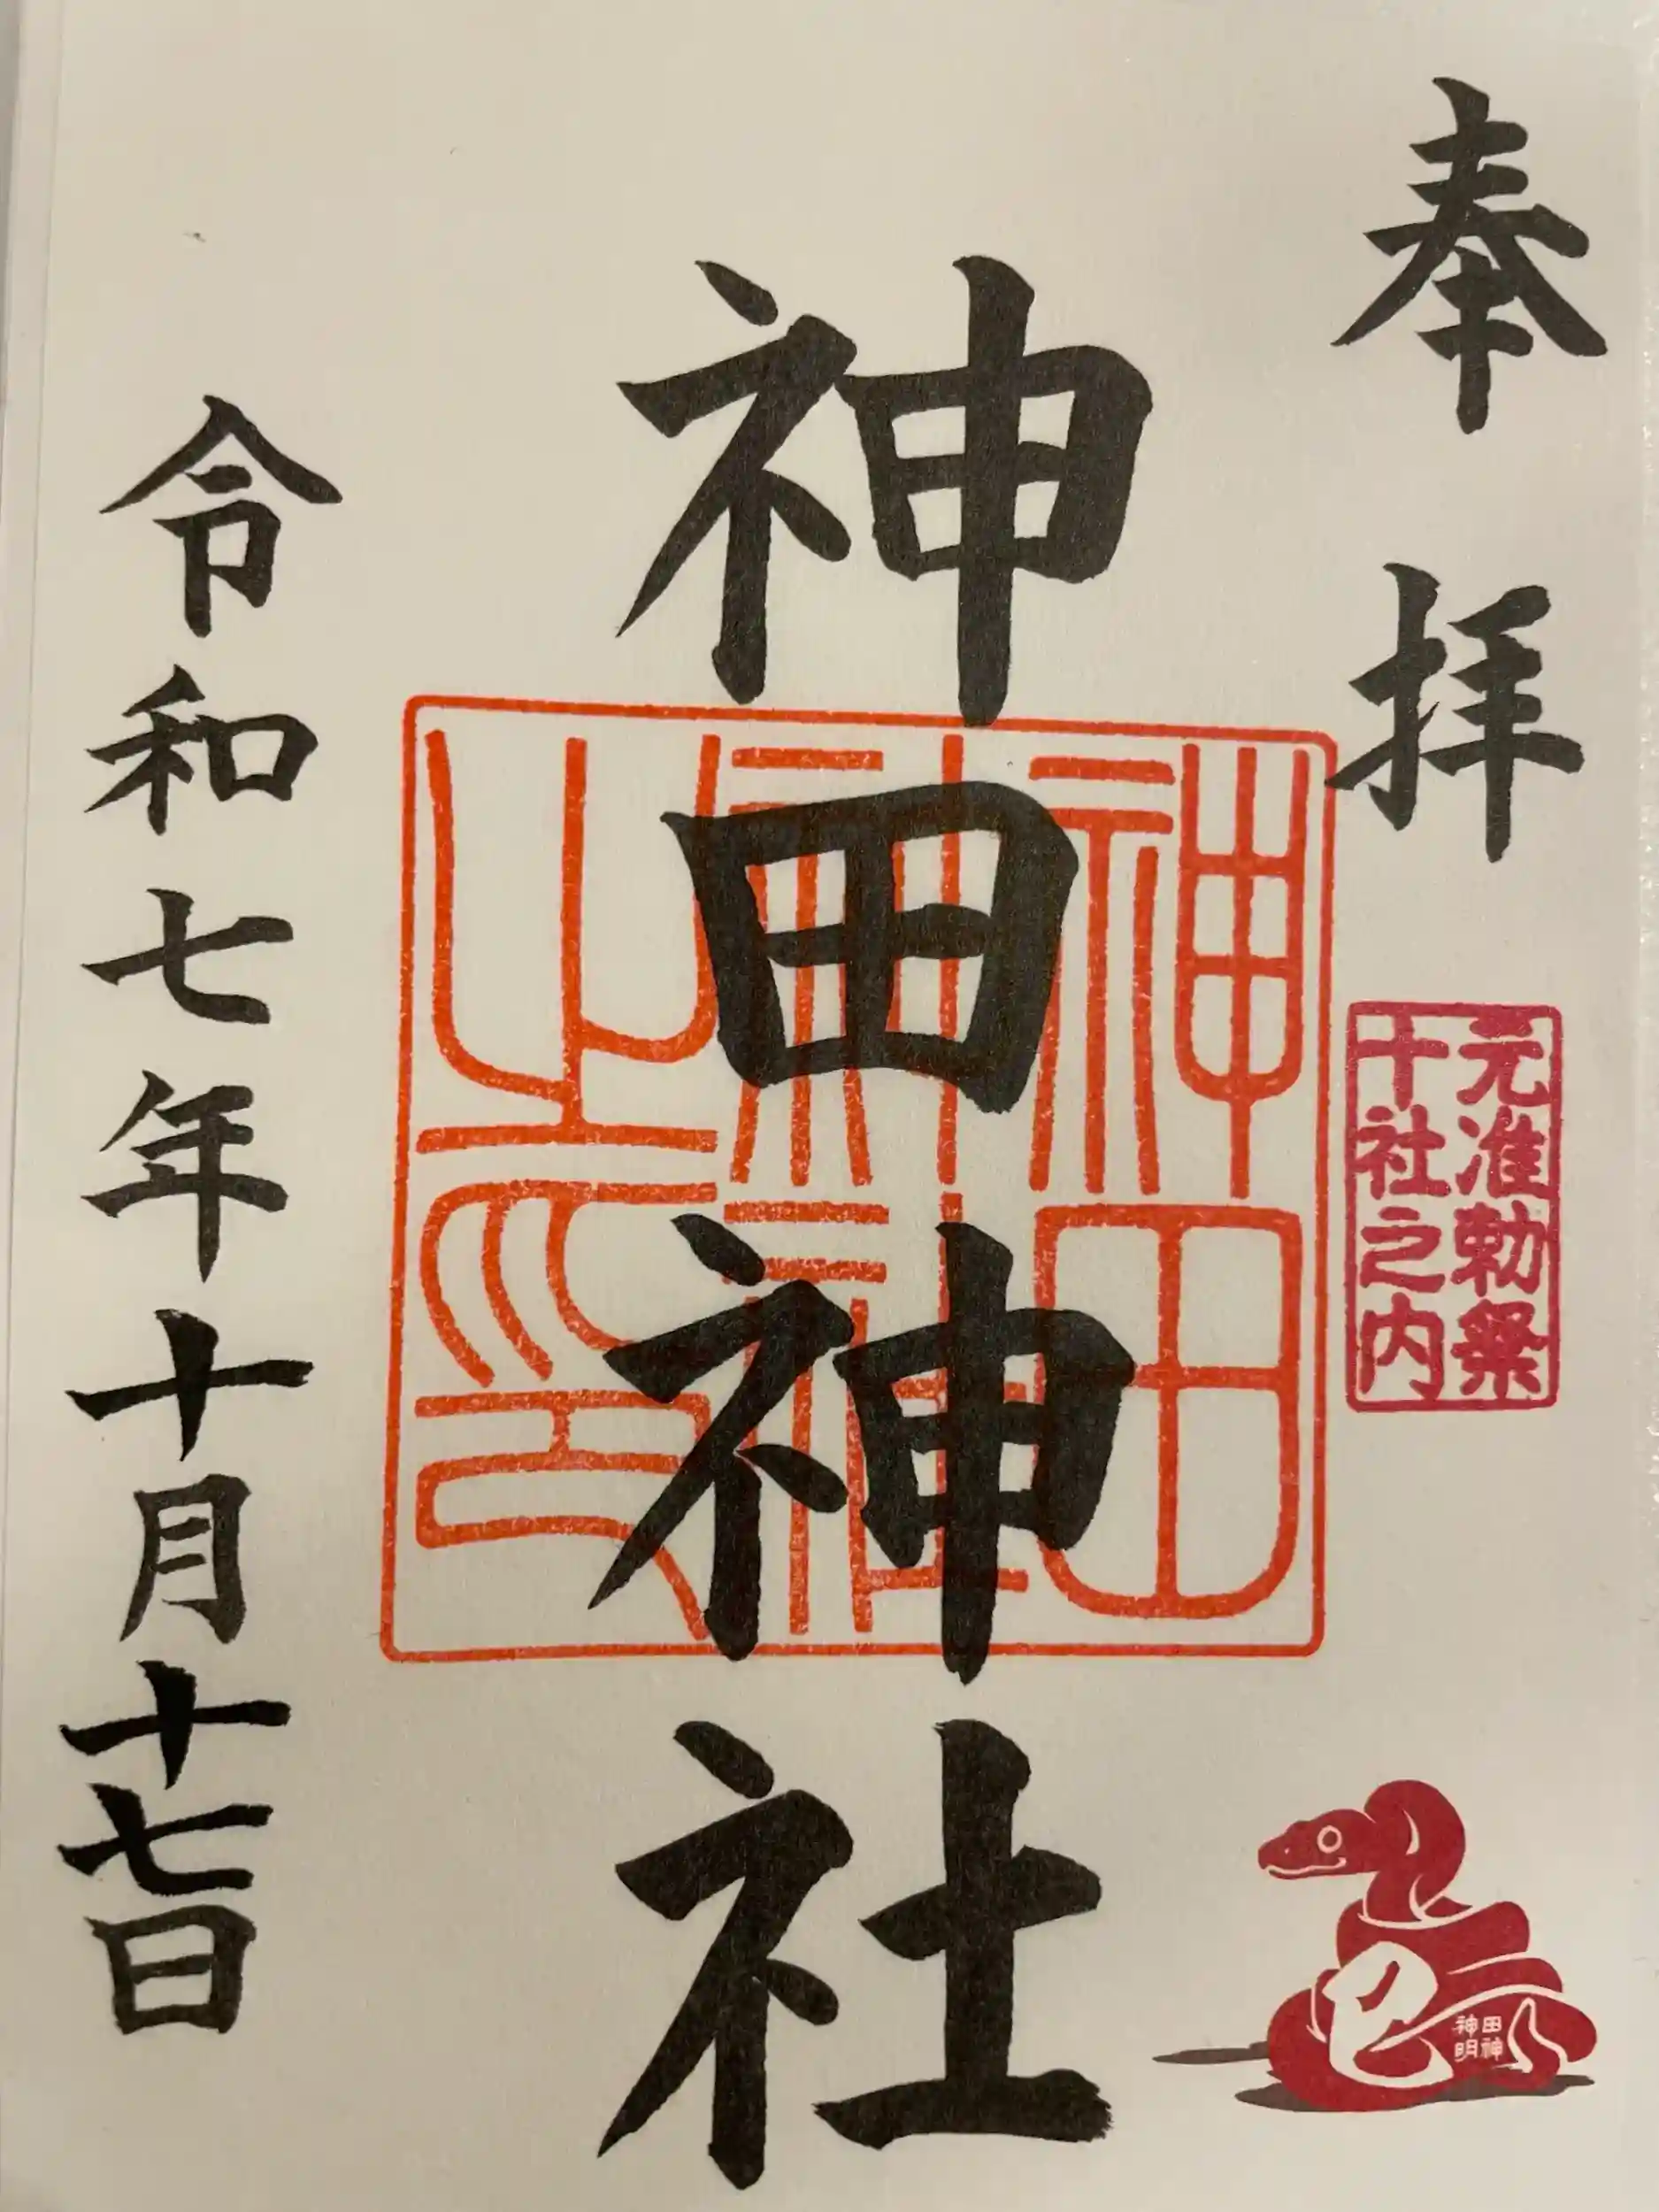 奉拝
元准勅祭
十社之内
神田神社
神田
神社
之印
令和七年十月十七日
巳
田神
神明